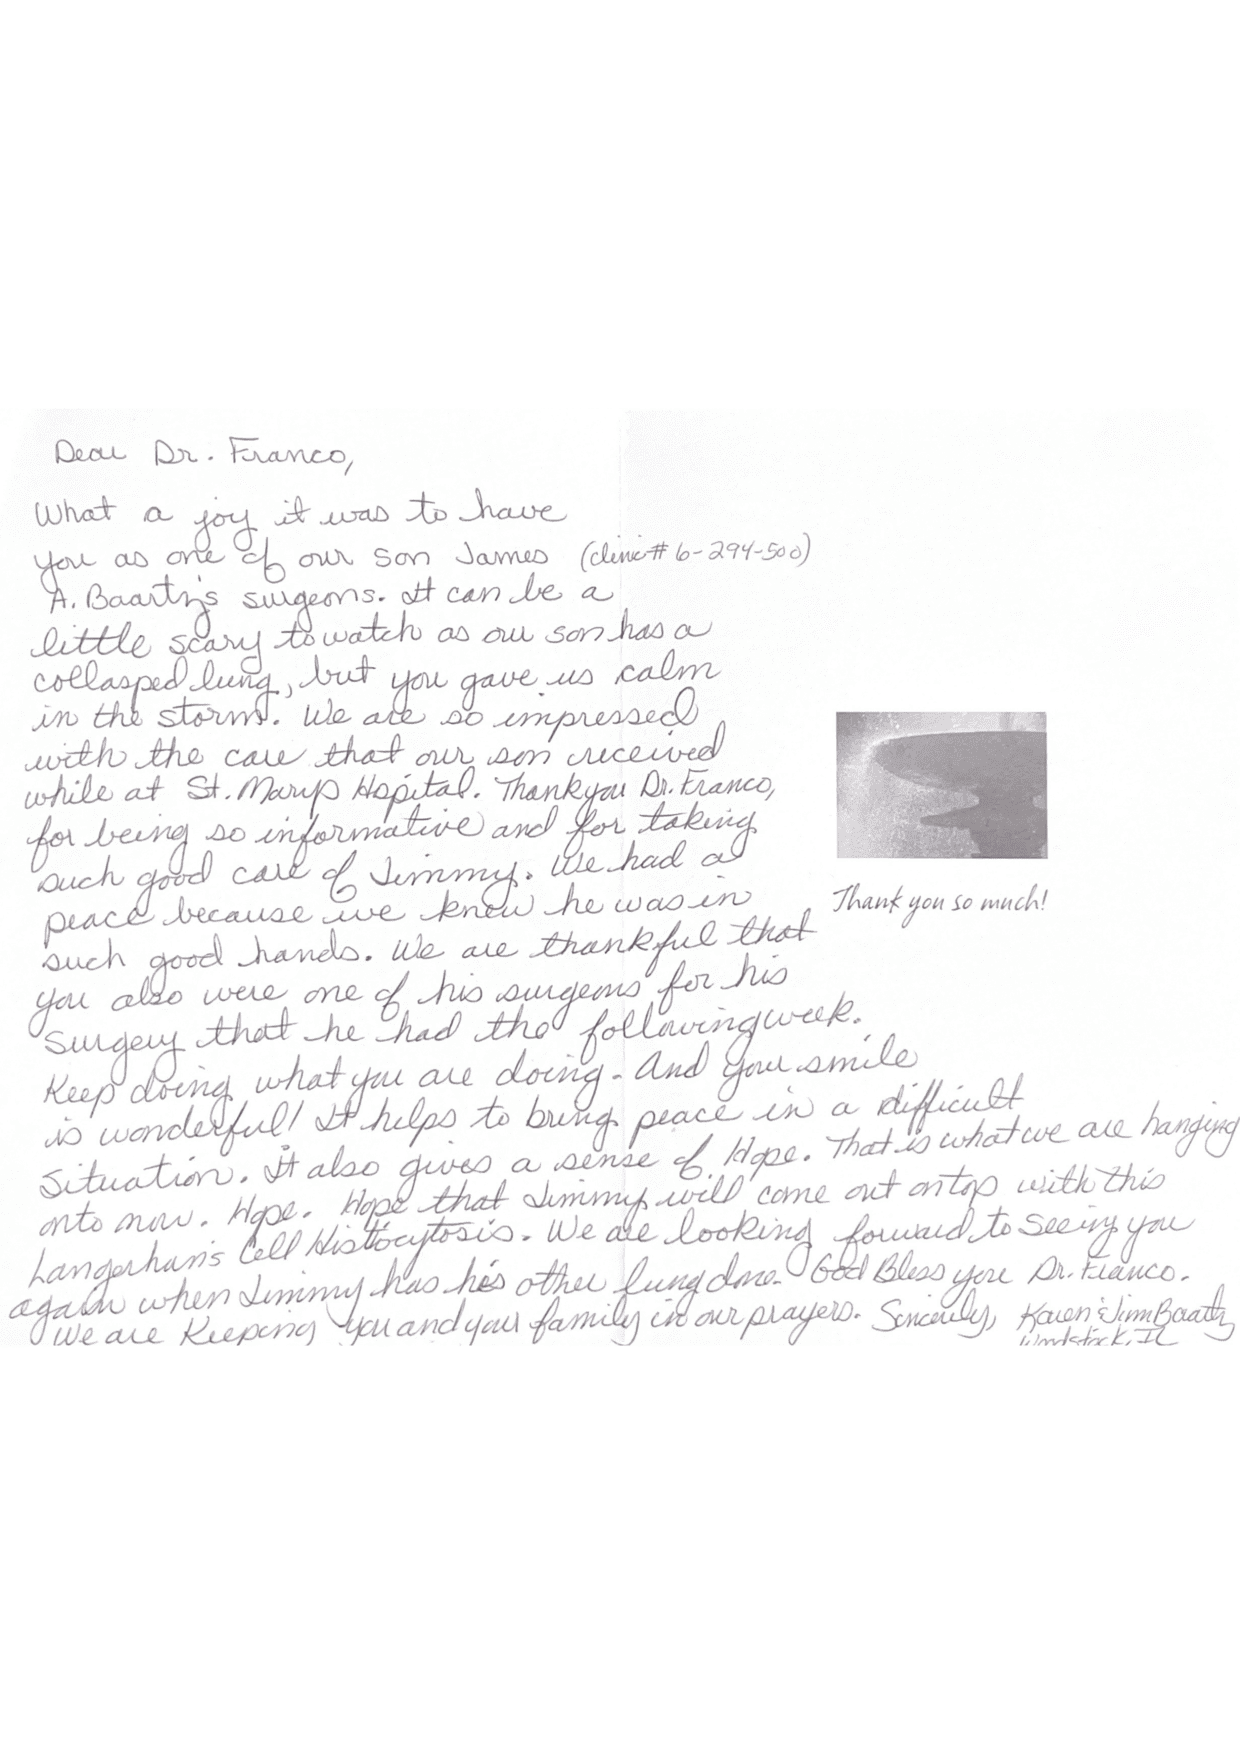 Dear Dr. Franco,
What a joy it was to have
you as one of our son James (clinic # 6-294-500)
A. Baartz's surgeons. It can be a
little scary to watch as our son has a
collasped lung, but you gave us calm
in the storm. We are so impressed
with the care that our son received
while at St. Marys Hospital. Thank you Dr. Franco,
for being so informative and for taking
such good care of Jimmy. We had a
peace because we knew he was in
such good hands. We are thankful that
you also were one of his surgeons for his
surgery that he had the following week.
Keep doing what you are doing. And your smile
is wonderful! It helps to bring peace in a difficult
situation. It also gives a sense of Hope. That is what we are hanging
onto now. Hope. Hope that Jimmy will come out on top with this
Langerhan's Cell Histocytosis. We are looking forward to seeing you
again when Jimmy has his other lung done. God Bless you Dr. Franco.
We are Keeping you and your family in our prayers. Sincerely, Karen & Jim Baartz
Woodstock, IL
Thank you so much!